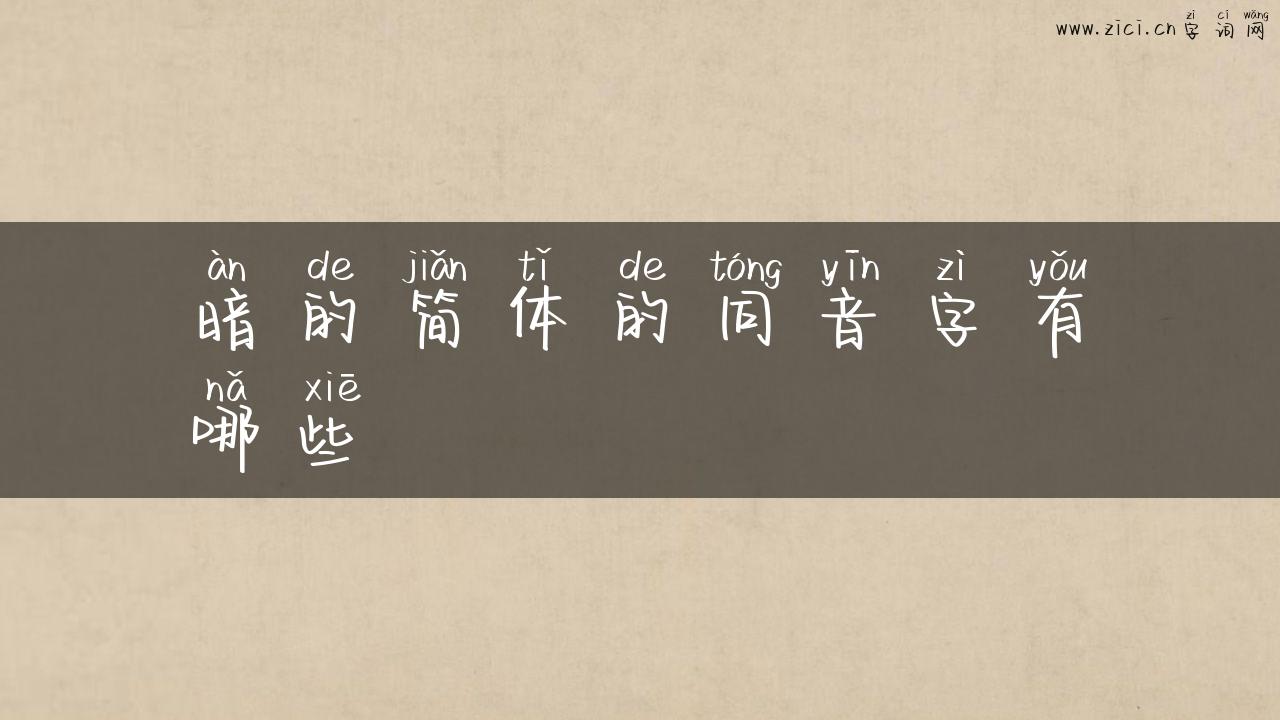 zì cí wǎng
www.zici.cn 字词网
àn de jiǎn tǐ de tóng yīn zì yǒu
暗的简体的同音字有
nǎ xiē
哪些